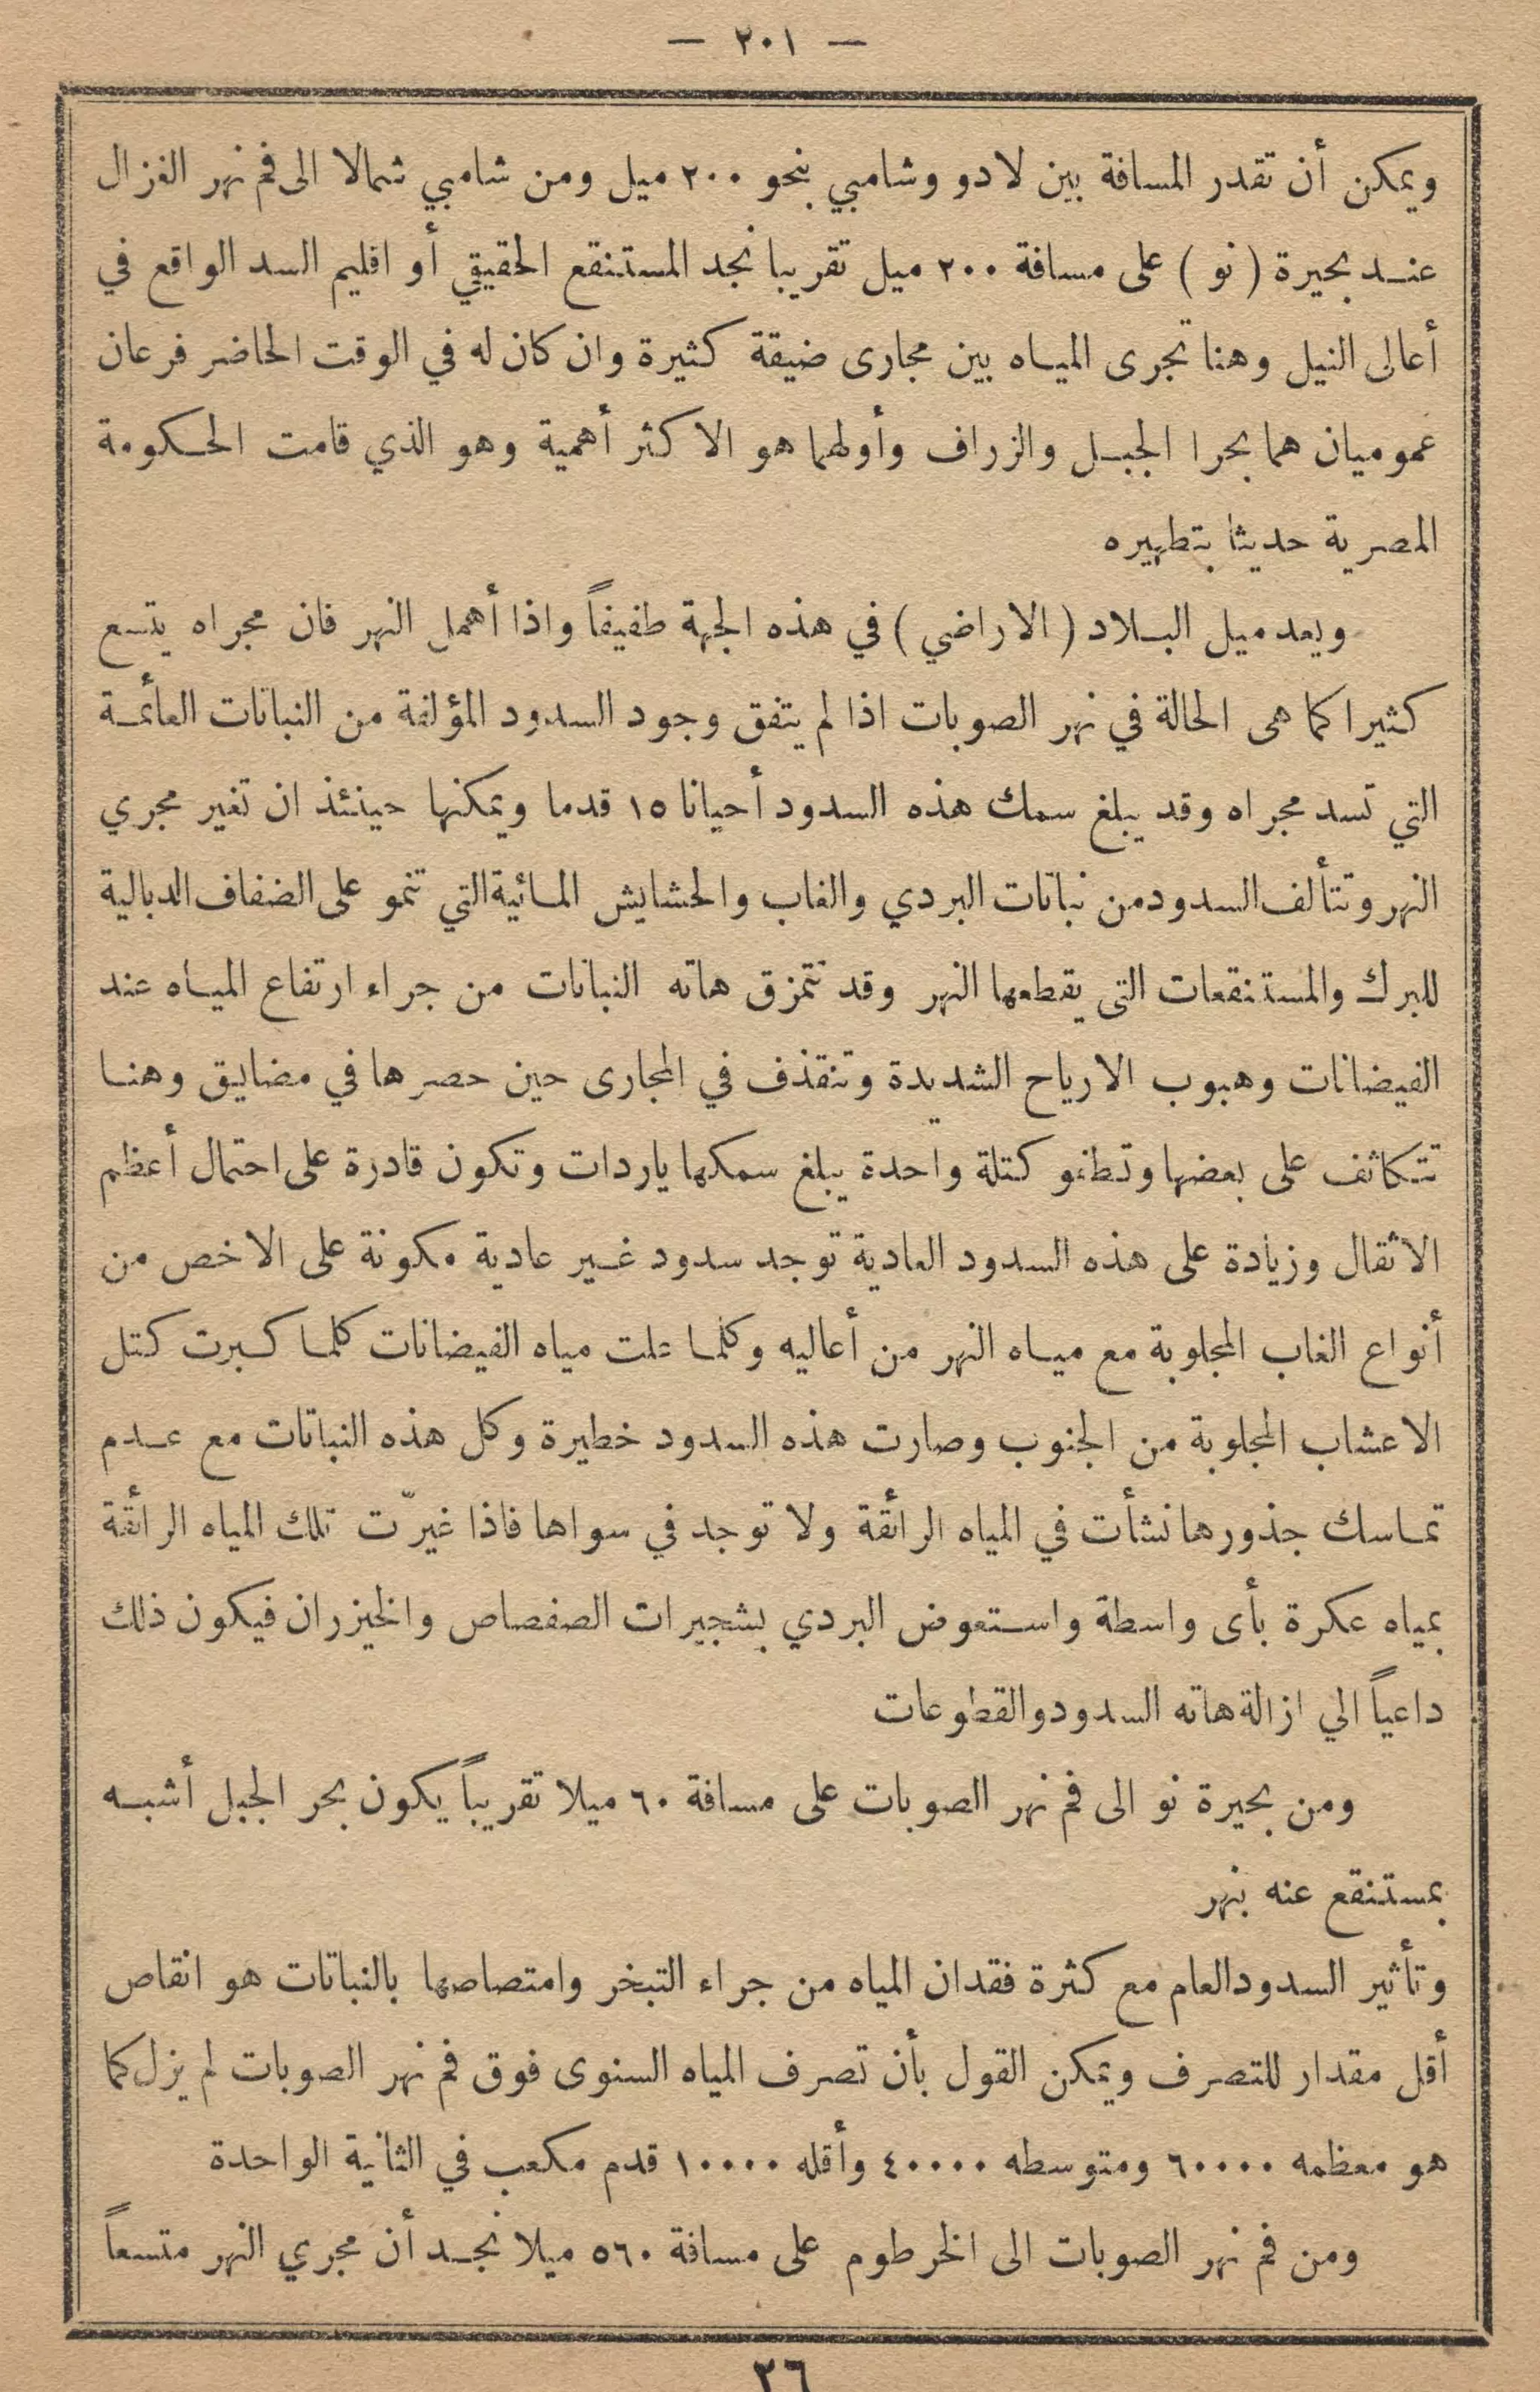 — ٢٠١ —
ويمكن أن تقدر المسافة بين لادو وشامبي بنحو ٢٠٠ ميل ومن شامبي شمالا الى فم نهر الغزال
عند بحيرة ( نو ) على مسافة ٢٠٠ ميل تقريبا نجد المستنقع الحقيقي أو اقليم السد الواقع في
أعالى النيل وهنا تجرى المياه بين مجارى ضيقة كثيرة وان كان له في الوقت الحاضر فرعان
عموميان هما بحرا الجبل والزراف وأولهما هو الاكثر أهمية وهو الذي قامت الحكومة
المصرية حديثا بتطهيره
ويعد ميل البلاد ( الاراضي ) في هذه الجهة طفيفاً واذا أهمل النهر فان مجراه يتسع
كثيرا كما هى الحالة في نهر الصوبات اذا لم يتفق وجود السدود المؤلفة من النباتات العائمة
التي تسد مجراه وقد يبلغ سمك هذه السدود أحيانا ١٥ قدما ويمكنها حينئذ ان تغير مجري
النهر وتتألف السدود من نباتات البردي والغاب والحشايش المائية التي تنمو على الضفاف الدبالية
للبرك والمستنقعات التى يقطعها النهر وقد تتمزق هاته النباتات من جراء ارتفاع المياه عند
الفيضانات وهبوب الارياح الشديدة وتنقذف في المجارى حين حصرها في مضايق وهنا
تتكاثف على بعضها وتطفو كتلة واحدة يبلغ سمكها ياردات وتكون قادرة على احتمال أعظم
الاثقال وزيادة على هذه السدود العادية توجد سدود غير عادية مكونة على الاخص من
أنواع الغاب المجلوبة مع مياه النهر من أعاليه وكلما علت مياه الفيضانات كلما كبرت كتل
الاعشاب المجلوبة من الجنوب وصارت هذه السدود خطيرة وكل هذه النباتات مع عدم
تماسك جذورها نشأت في المياه الرائقة ولا توجد في سواها فاذا غيرّت تلك المياه الرائقة
بمياه عكرة بأى واسطة واستعوض البردي بشجيرات الصفصاص والخيزران فيكون ذلك
داعياً الي ازالة هاته السدود والقطوعات
ومن بحيرة نو الى فم نهر الصوبات على مسافة ٦٠ ميلا تقريباً يكون بحر الجبل أشبه
بمستنقع عنه بنهر
وتأثير السدود العام مع كثرة فقدان المياه من جراء التبخر وامتصاصها بالنباتات هو انقاص
أقل مقدار للتصرف ويمكن القول بأن تصرف المياه السنوى فوق فم نهر الصوبات لم يزل كما
هو معظمه ٦٠٠٠٠ ومتوسطه ٤٠٠٠٠ وأقله ١٠٠٠٠ قدم مكعب في الثانية الواحدة
ومن فم نهر الصوبات الى الخرطوم على مسافة ٥٦٠ ميلا نجد أن مجري النهر متسعاً
٢٦